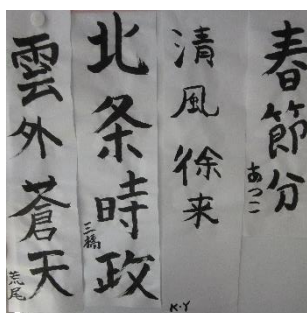 春節分
あつこ
清風徐来
K・Y
北条時政
三橋
雲外蒼天
荒尾